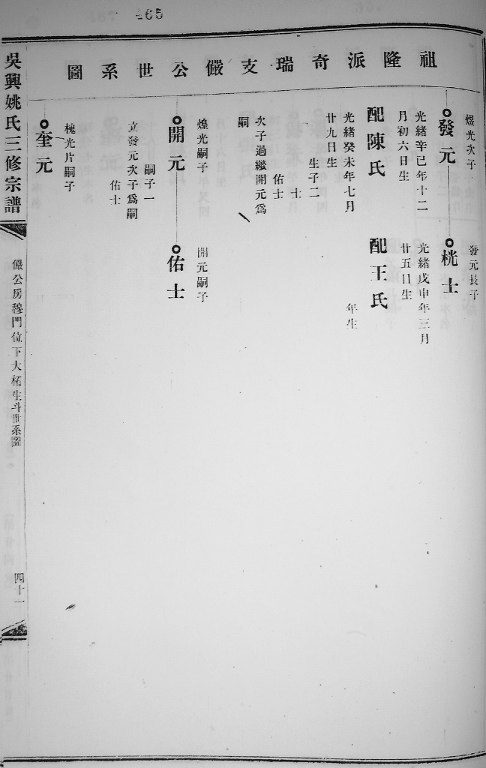 465
祖隆派奇瑞支儼公世系圖
煌光次子
發元
光緒辛巳年十二
月初六日生
配陳氏
光緒癸未年七月
廿九日生
生子二
士
佑士
次子過繼開元為
嗣
發元長子
桄士
光緒戊申年三月
廿五日生
配王氏
年生
煌光嗣子
開元
嗣子一
立發元次子為嗣
佑士
開元嗣子
佑士
槐光片嗣子
奎元
吳興姚氏三修宗譜
儼公房 門位下大 生斗世系圖
四十一